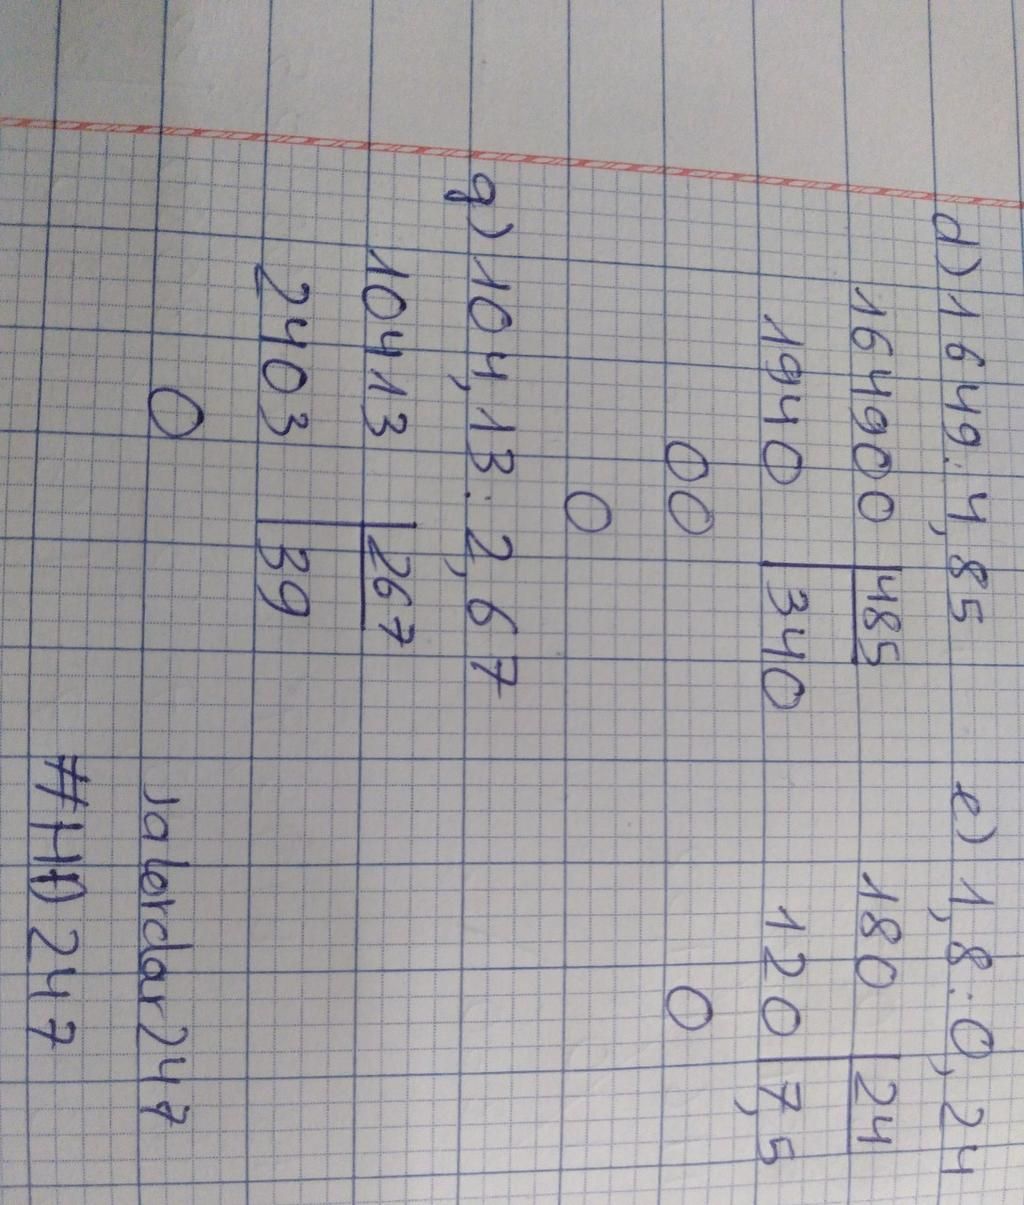 d) 1649 : 4,85
164900 | 485
1940 | 340
00
0
e) 1,8 : 0,24
180 | 24
120 | 7,5
0
g) 104,13 : 2,67
10413 | 267
2403 | 39
0
247
#HD247